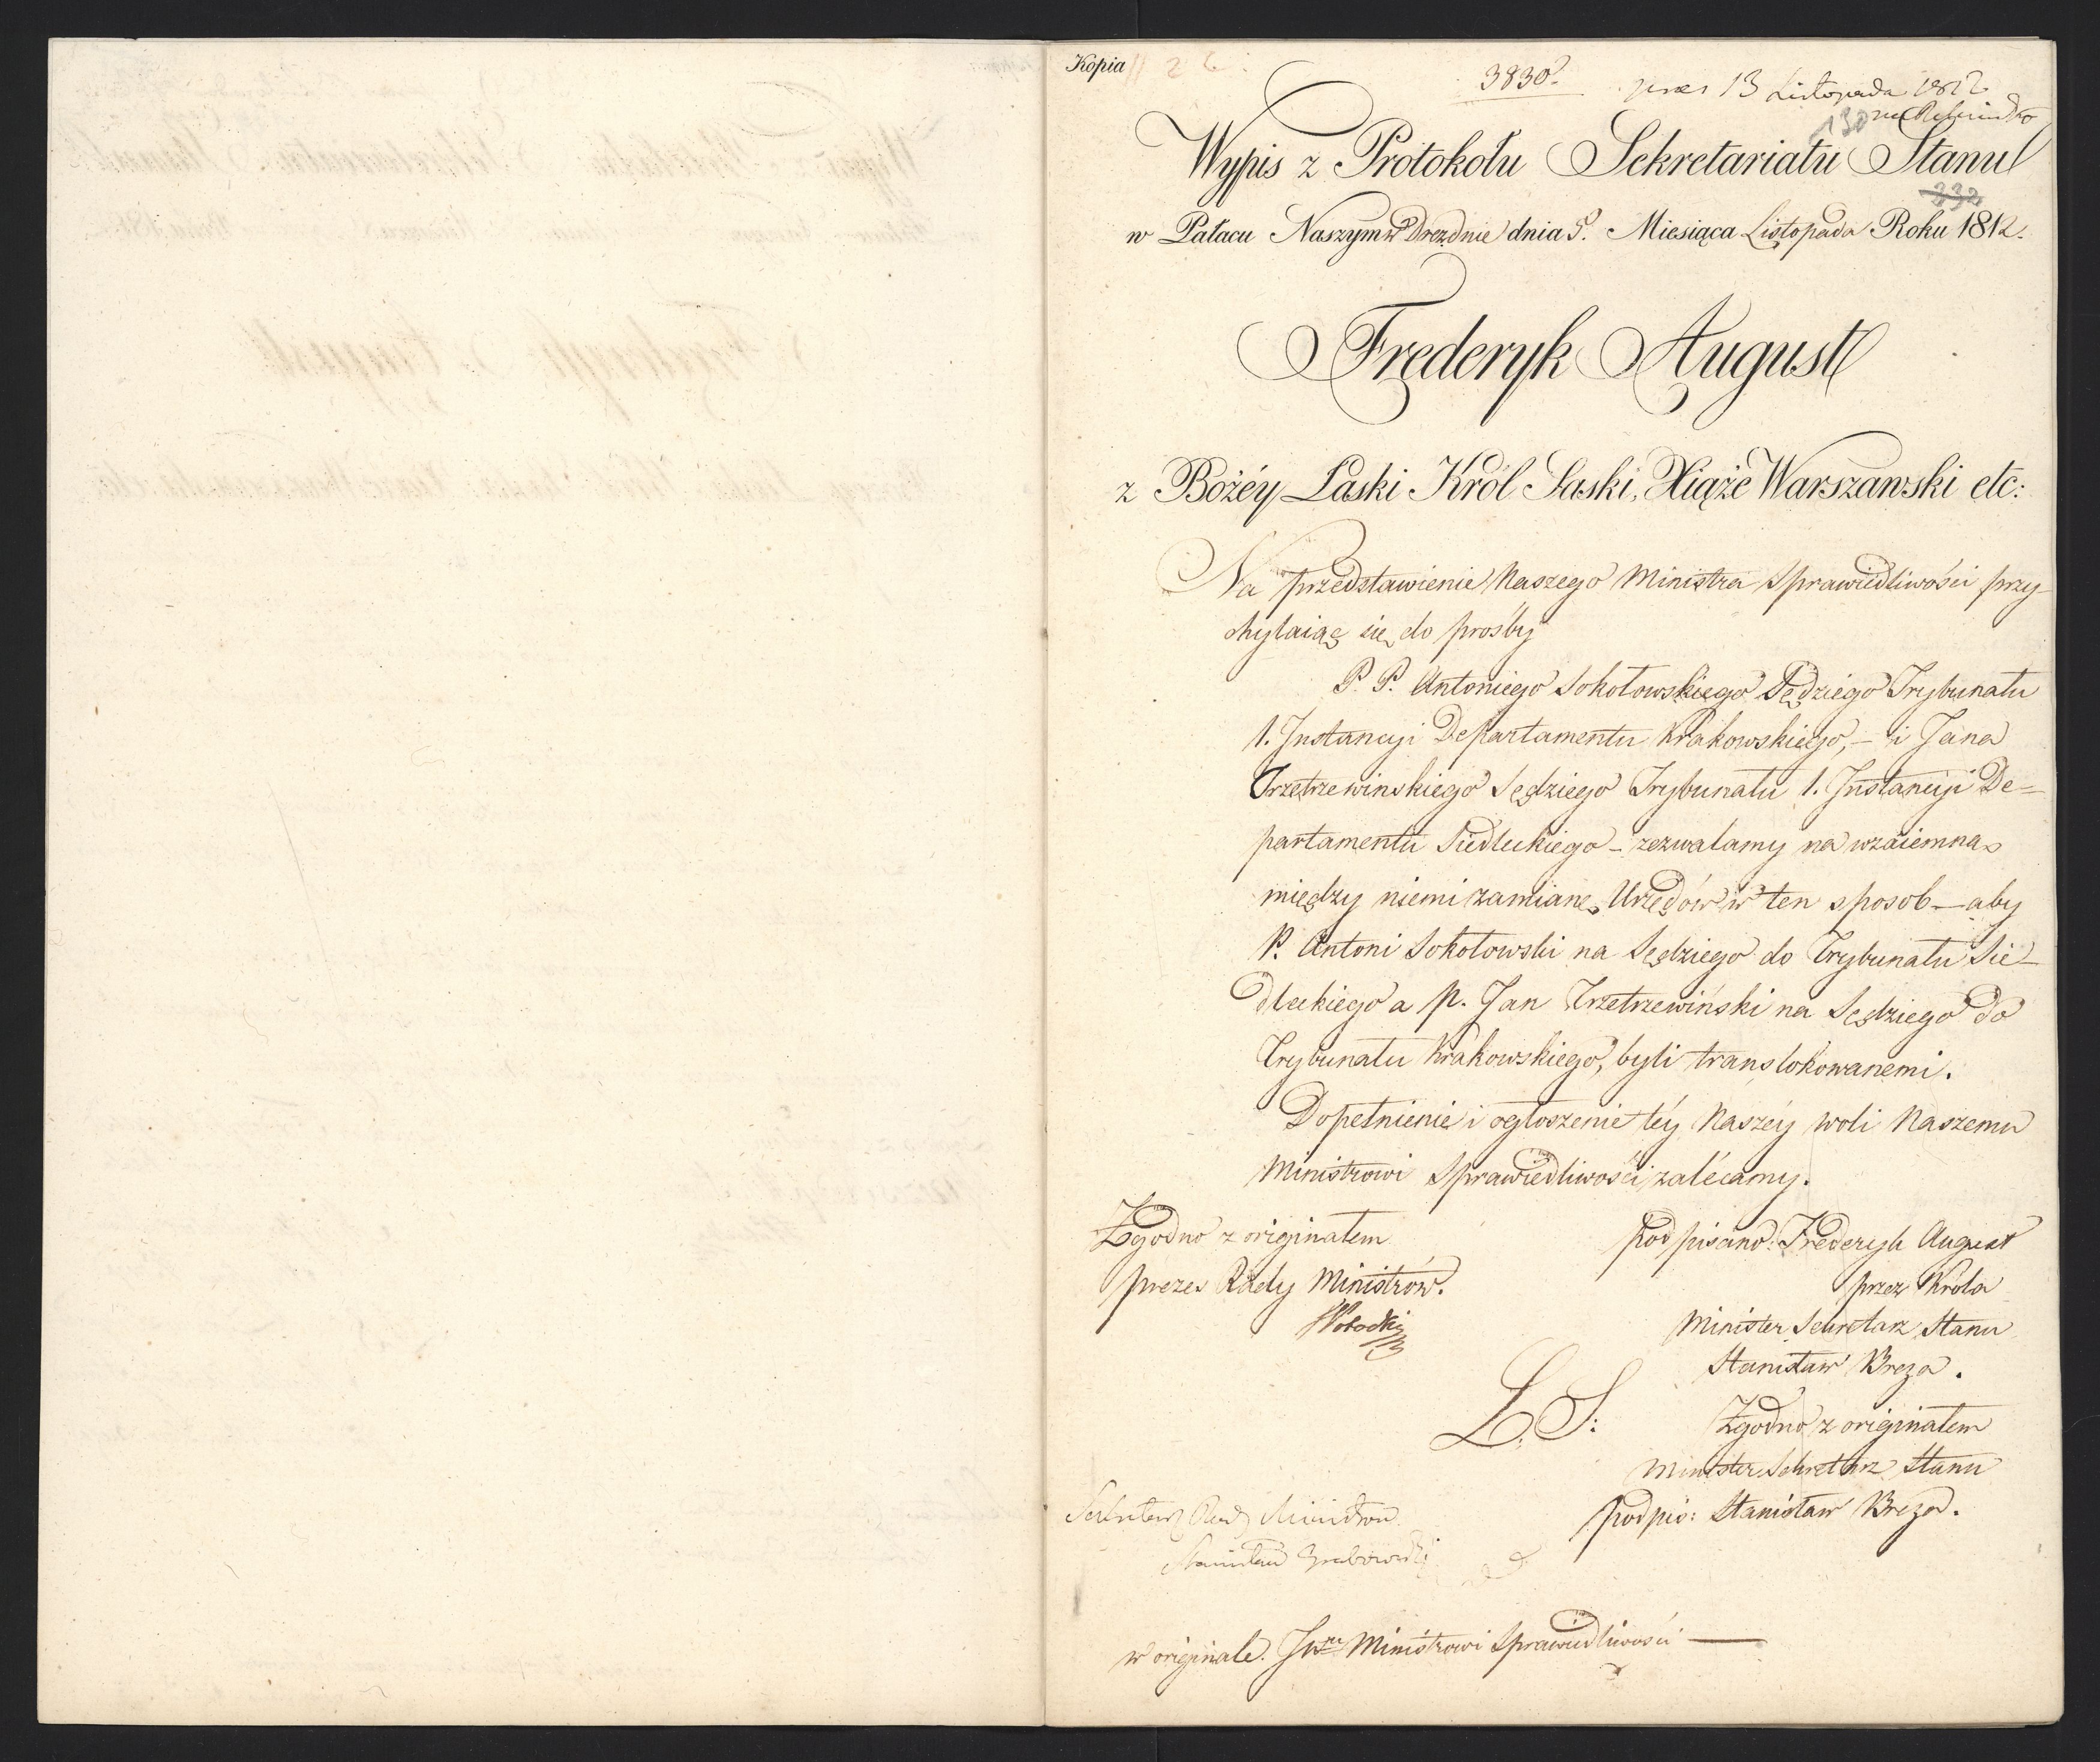 Kopia
26.
3830.
prez 13 Listopada 1812
130
Wypis z Protokołu Sekretariatu Stanu
232
w Pałacu Naszym w Dreznie dnia 5. Miesiąca Listopada Roku 1812.
Frederyk August
z Bożéy Łaski Król Saski, Xiąże Warszawski etc:
Na przedstawienie Naszego Ministra Sprawiedliwości przy-
chylaiąc się do prośby
P. P. Antoniego Sokołowskiego Sędziego Trybunału
1. Instancyi Departamentu Krakowskiego, – i Jana
Trzetrzewinskiego Sędziego Trybunału 1. Instancyi De=
partamentu Siedleckiego – zezwalamy na wzaiemną
między niemi zamianę Urzędów w ten sposob – aby
P. Antoni Sokołowski na Sędziego do Trybunału Sie-
dleckiego a P. Jan Trzetrzewiński na Sędziego do
Trybunału Krakowskiego, byli translokowanemi.
Dopełnienie i ogłoszenie téy Naszéy woli Naszemu
Ministrowi Sprawiedliwości zalécamy.
Zgodno z originałem
prezes Rady Ministrów.
podpisano: Frederyk August
przez Króla
Minister Sekretarz Stanu
Stanisław Breza.
L. S:
Zgodno z originałem
Minister Sekretarz Stanu
podpis: Stanisław Breza.
Sekretarz Rady Ministrow
Stanisław Grabowski
w originale. JWmu Ministrowi Sprawiedliwości —